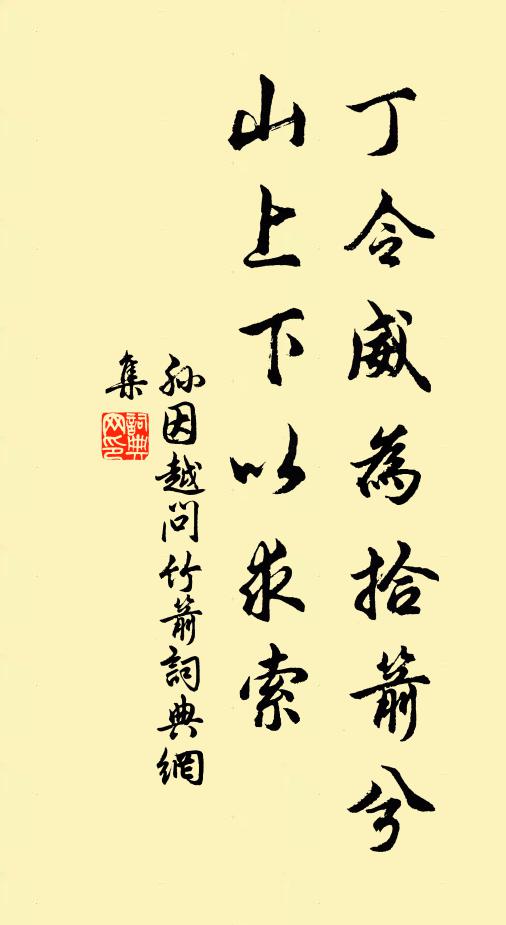 丁令威為拾箭兮
山上下以求索
孫因越問竹箭詞典網
集
詞典
网印